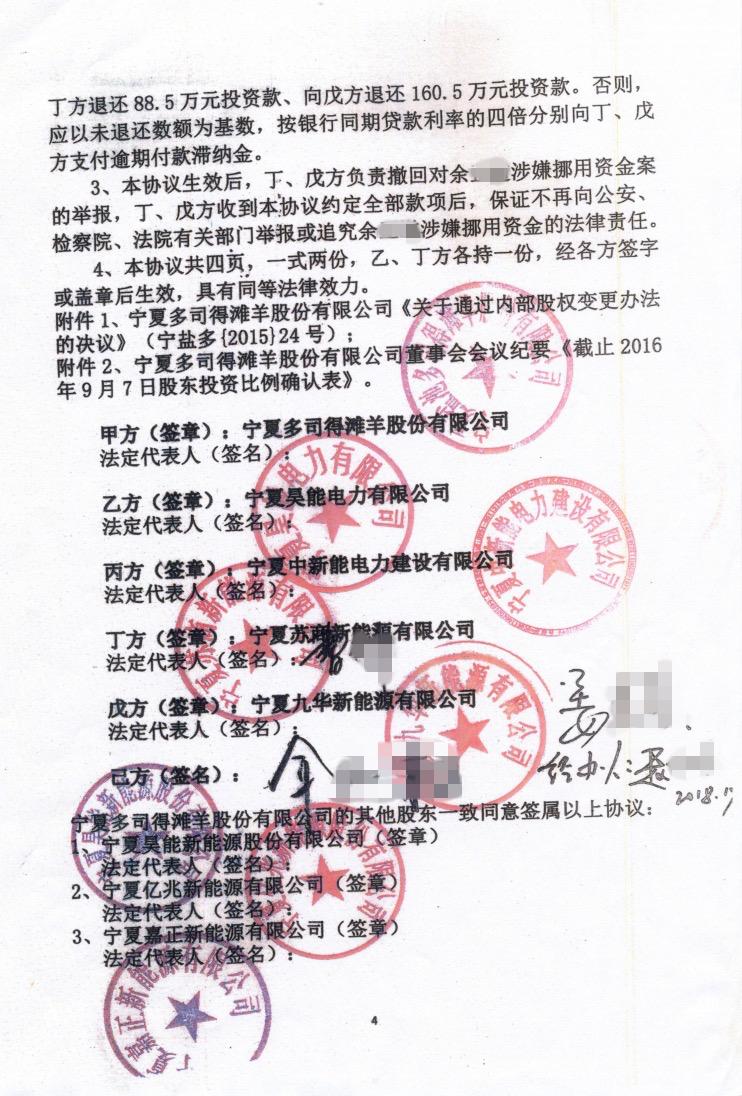 丁方退还88.5万元投资款、向戊方退还160.5万元投资款。否则,
应以未退还数额为基数,按银行同期贷款利率的四倍分别向丁、戊
方支付逾期付款滞纳金。
3、本协议生效后,丁、戊方负责撤回对余 涉嫌挪用资金案
的举报,丁、戊方收到本协议约定全部款项后,保证不再向公安、
检察院、法院有关部门举报或追究余 涉嫌挪用资金的法律责任。
4、本协议共四页,一式两份,乙、丁方各持一份,经各方签字
或盖章后生效,具有同等法律效力。
附件1、宁夏多司得滩羊股份有限公司《关于通过内部股权变更办法
的决议》(宁盐多{2015}24号);
附件2、宁夏多司得滩羊股份有限公司董事会会议纪要《截止2016
年9月7日股东投资比例确认表》。
甲方(签章):宁夏多司得滩羊股份有限公司
法定代表人(签名):
乙方(签章):宁夏昊能电力有限公司
法定代表人(签名):
丙方(签章):宁夏中新能电力建设有限公司
法定代表人(签名):
丁方(签章):宁夏苏商新能源有限公司
法定代表人(签名):
戊方(签章):宁夏九华新能源有限公司
法定代表人(签名):
姜
己方(签名):余
经办人:
2018.11
宁夏多司得滩羊股份有限公司的其他股东一致同意签属以上协议:
1、宁夏昊能新能源股份有限公司(签章)
法定代表人(签名):
2、宁夏亿兆新能源有限公司(签章)
法定代表人(签名):
3、宁夏嘉正新能源有限公司(签章)
法定代表人(签名):
4